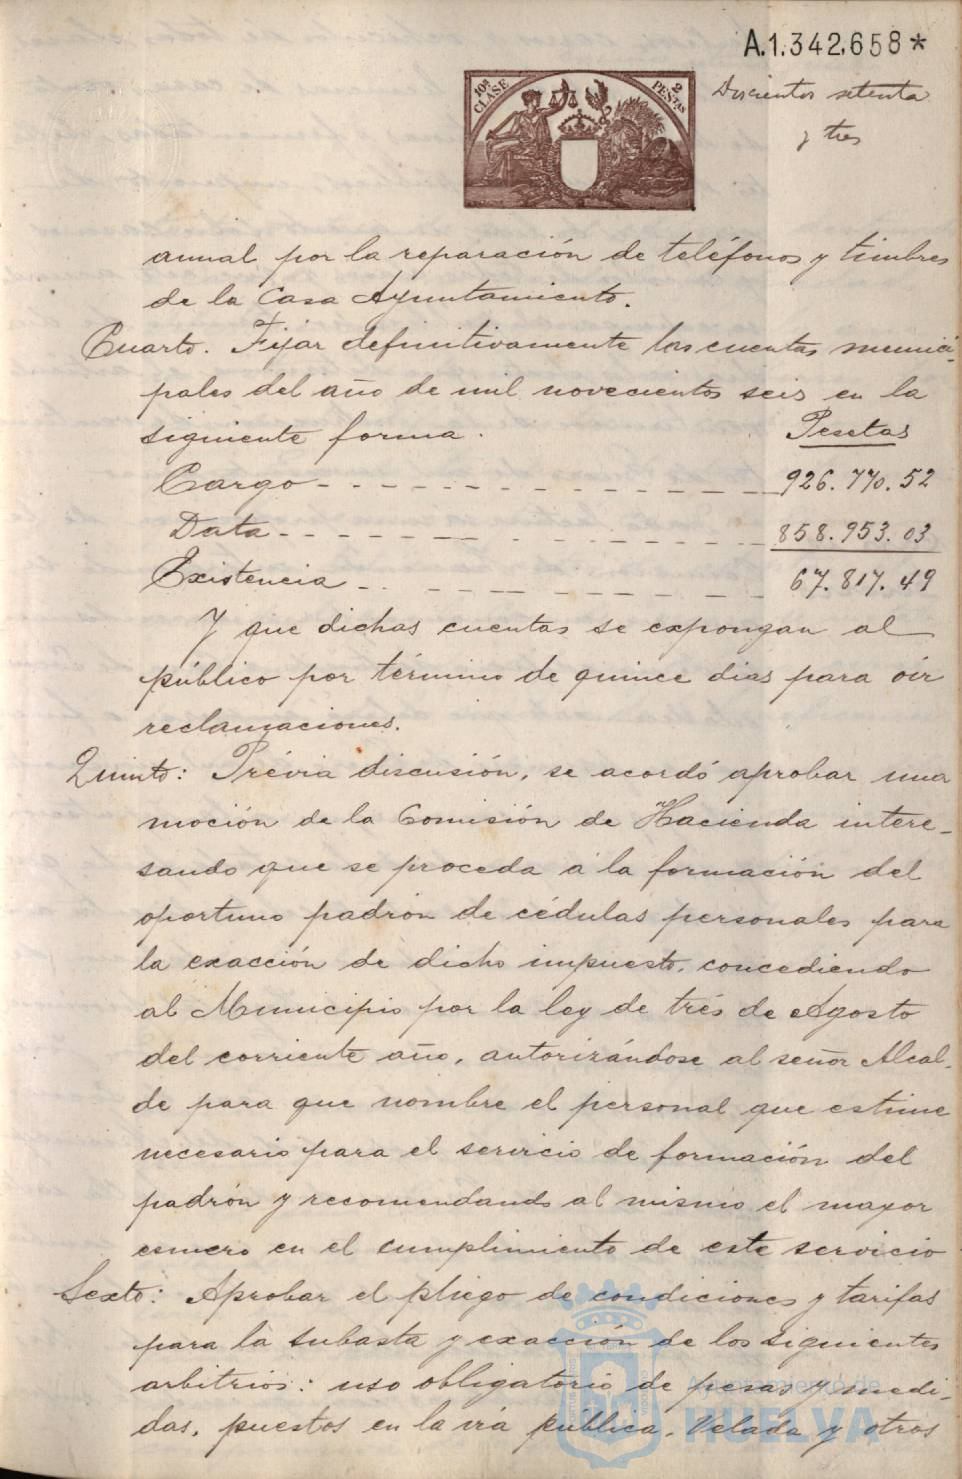 A.1.342.658*
10ª CLASE 2 PESTAS
Doscientos setenta
y tres
anual por la reparación de teléfonos y timbres
de la Casa Ayuntamiento.
Cuarto. Fijar definitivamente las cuentas munici-
pales del año de mil novecientos seis en la
siguiente forma. Pesetas
Cargo - - - - - - - - - - 926.770.52
Data - - - - - - - - - - 858.953.03
Existencia - - - - - - - - 67.817.49
Y que dichas cuentas se expongan al
público por término de quince dias para oír
reclamaciones.
Quinto: Prévia discusión, se acordó aprobar una
moción de la Comisión de Hacienda intere-
sando que se proceda á la formación del
oportuno padrón de cédulas personales para
la exacción de dicho impuesto, concediendo
al Municipio por la ley de trés de Agosto
del corriente año, autorizándose al señor Alcal-
de para que nombre el personal que estime
necesario para el servicio de formación del
padrón y recomendando al mismo el mayor
esmero en el cumplimiento de este servicio
Sexto: Aprobar el pliego de condiciones y tarifas
para la subasta y exacción de los siguientes
arbitrios: uso obligatorio de pesas y medi-
das, puestos en la vía pública, Velada y otros
Ayuntamiento de
HUELVA